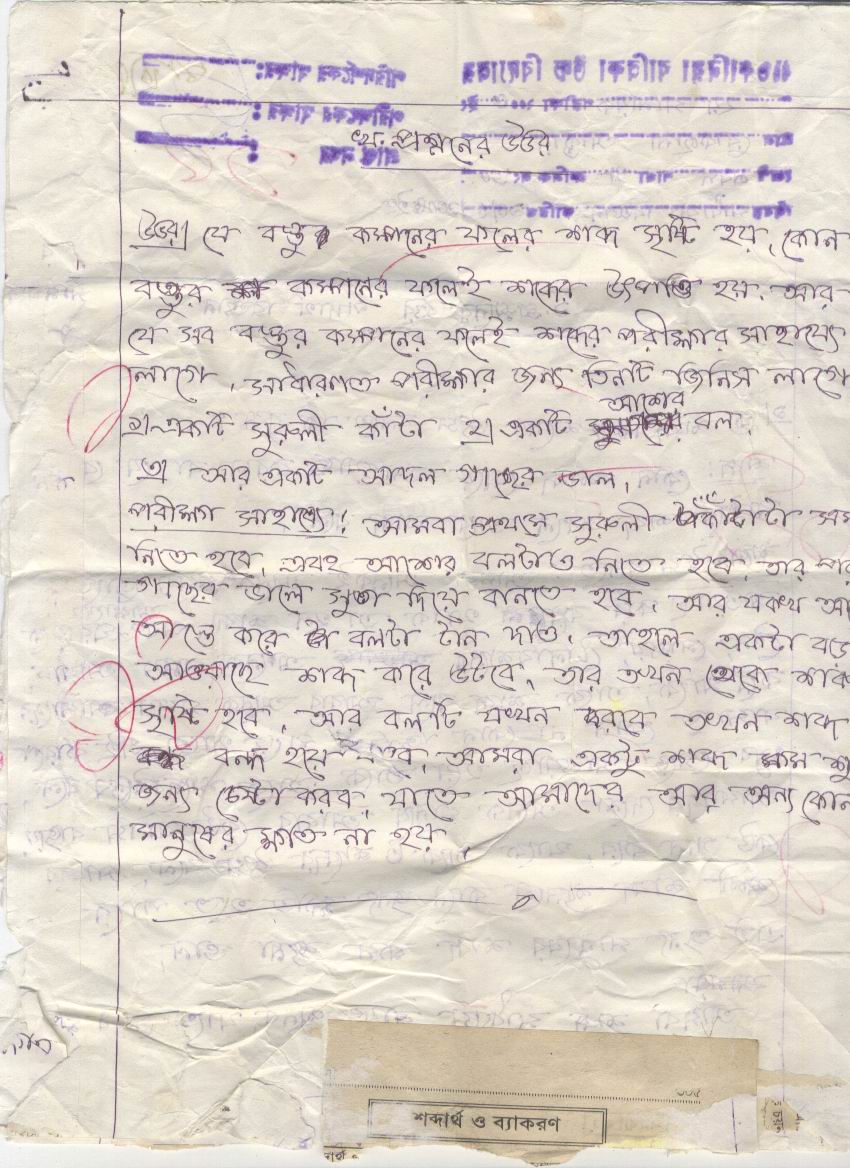 খ. প্রশ্নের উত্তর
উত্তর। যে বস্তুর কম্পনের ফলের শব্দ সৃষ্টি হয়, কোন
বস্তুর কম্পানের ফলেই শব্দের উৎপাত্তি হয়. আর
যে সব বস্তুর কম্পানের ফলেই শব্দের পরীক্ষার সাহায্যে
লাগে, সাধারণত পরীক্ষার জন্য তিনটি জিনিস লাগে
১। একটি সুরুলী কাঁটা ২। একটি আশের বল.
৩। আর একটি আদল গাছের ডাল,
পরীক্ষা সাহায্যে! আমরা প্রথমে সুরুলী কাঁটাটা
নিতে হবে, এবং আশের বলটাও নিতে হবে, তার
গাছের ডালে সুতা দিয়ে বানতে হবে, আর যকখ
আস্তে করে বলটা টান দাও. তাহলে একটা বড়
আওয়াছে শব্দ করে উটবে, তার তখন থেকে শব্দ
সৃষ্টি হবে, আর বলটি যখন দরবে তখন শব্দ
বন্দ হয়ে যাবে, আমরা একটু শব্দ
জন্য চেষ্টা করব, যাতে আমাদের আর অন্য কোন
মানুষের ক্ষতি না হয়,
৩৩৫
শব্দার্থ ও ব্যাকরণ